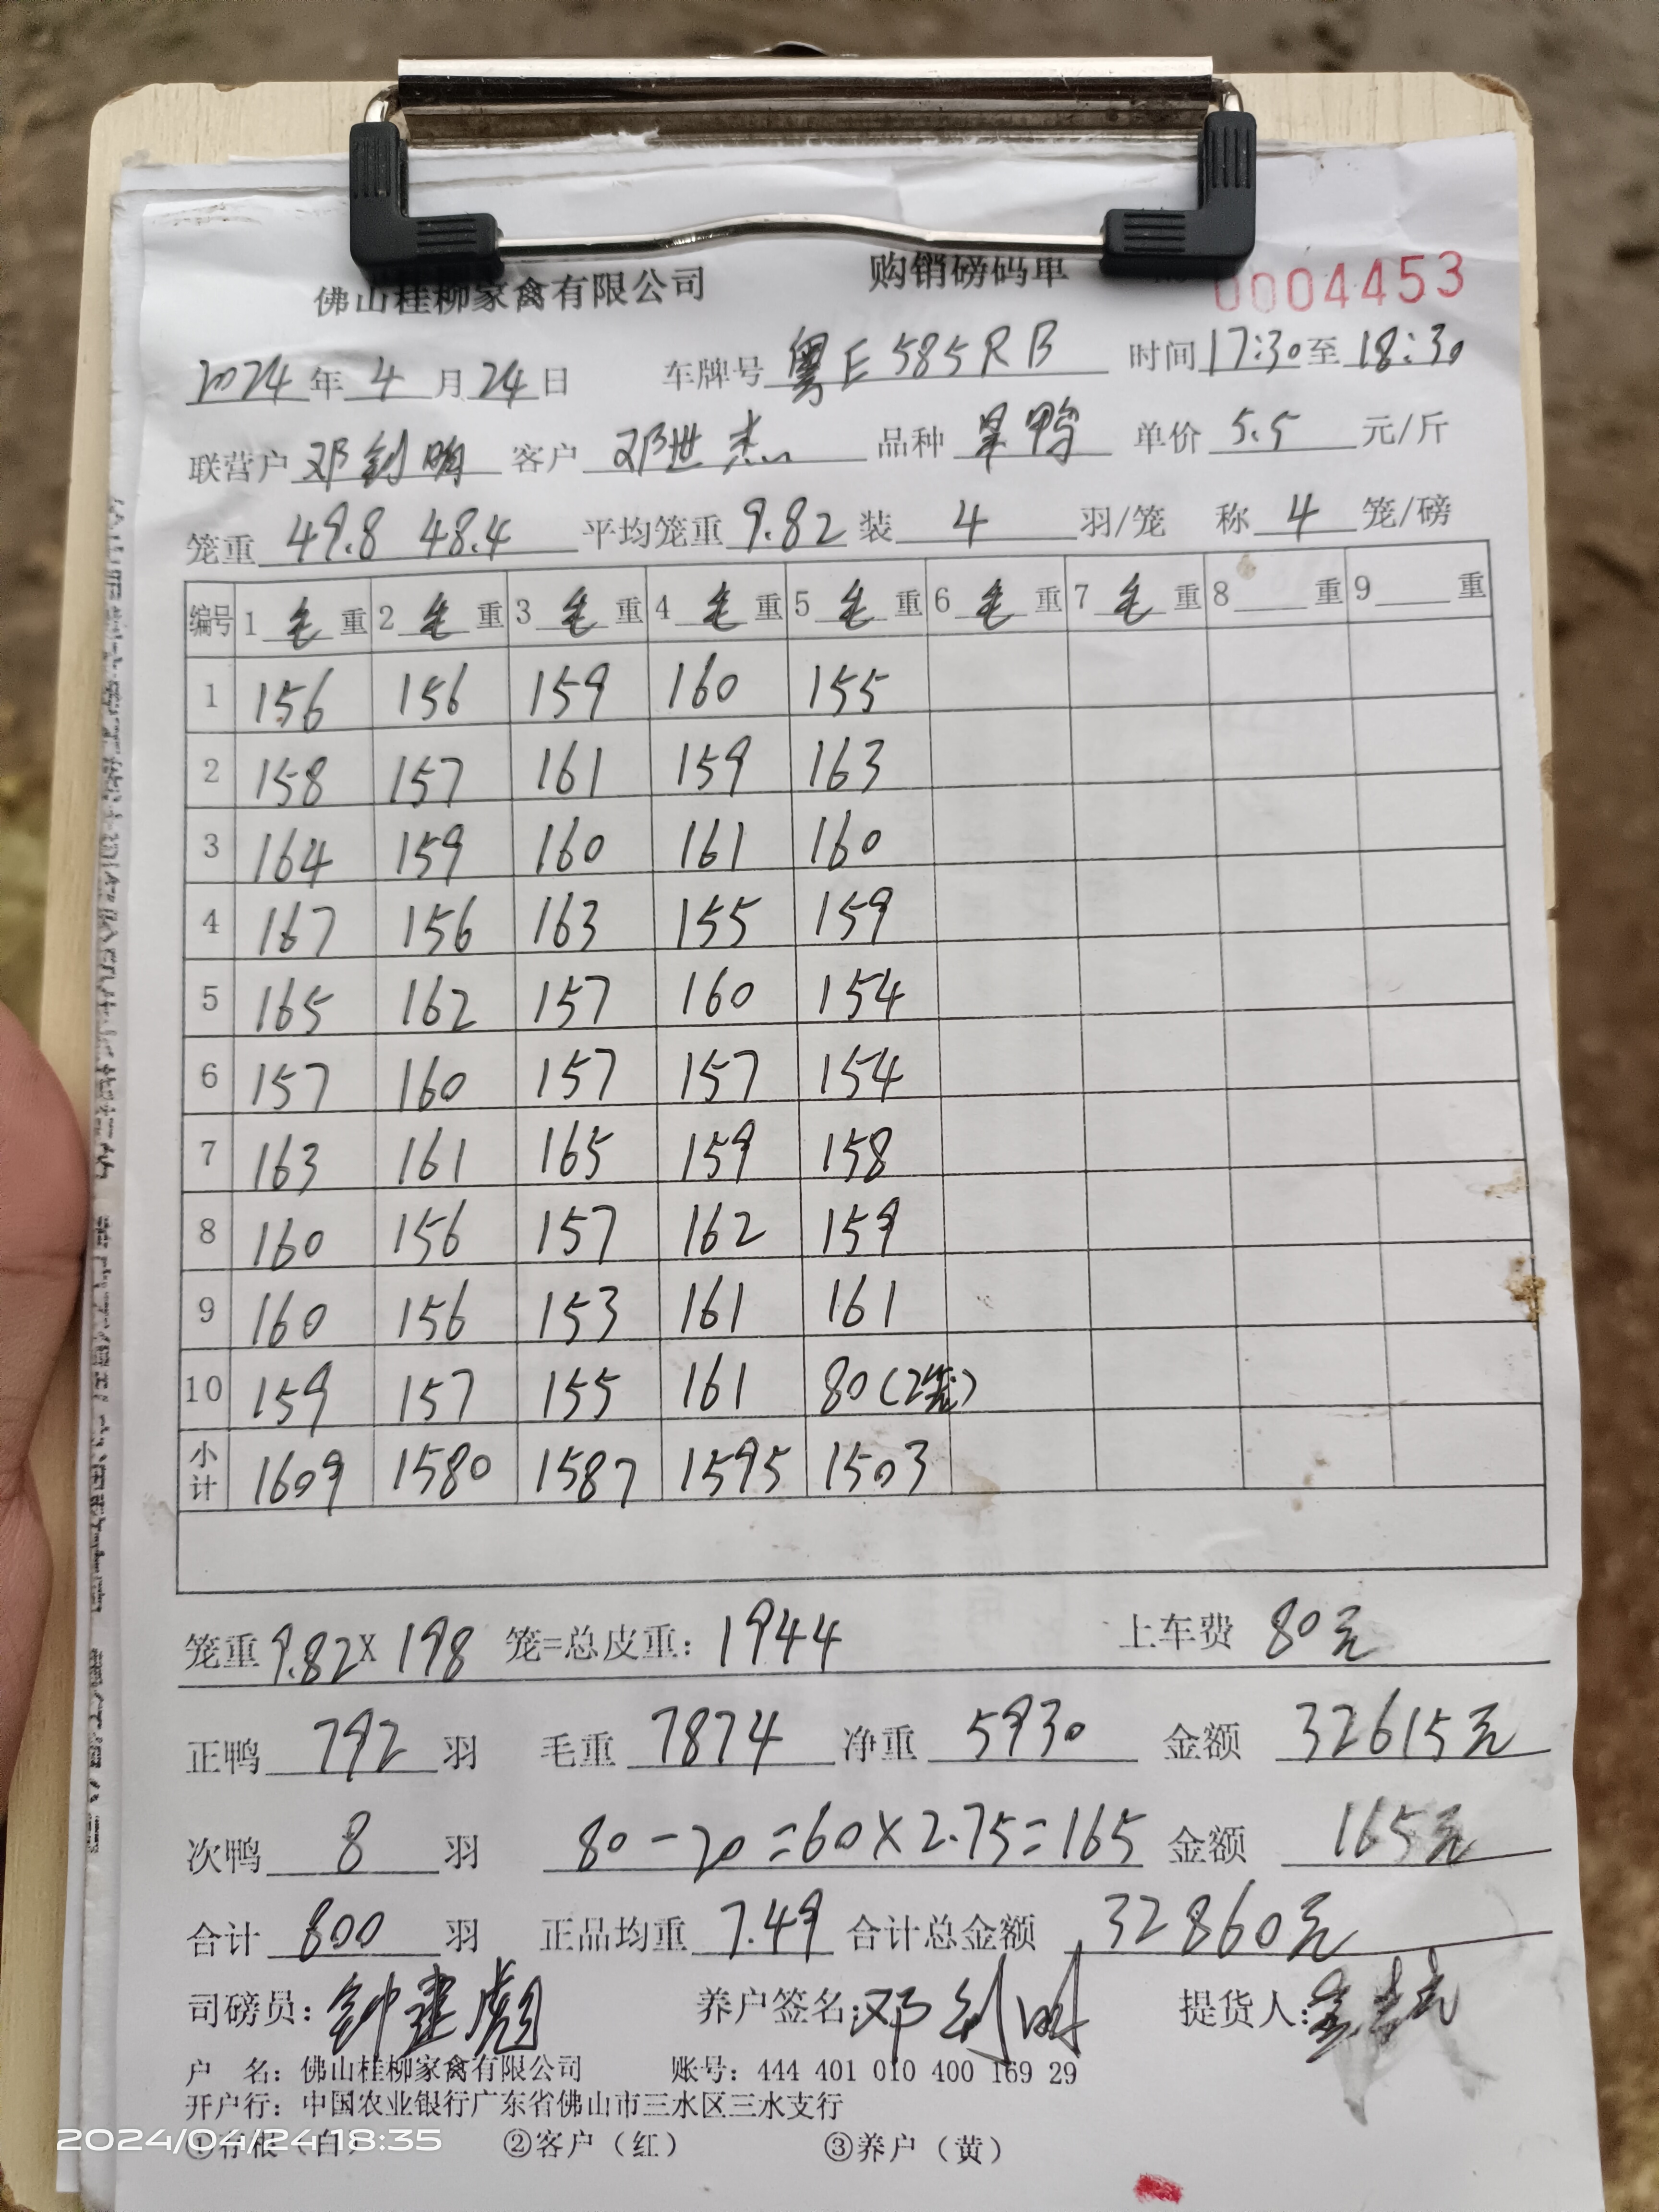 佛山桂柳家禽有限公司 购销磅码单 0004453
2024年4月24日 车牌号 粤E585RB 时间17:30至18:30
联营户 邓剑明 客户 邓世杰 品种 旱鸭 单价 5.5 元/斤
笼重 49.8 48.4 平均笼重 9.82 装 4 羽/笼 称 4 笼/磅
编号 1 毛 重 2 毛 重 3 毛 重 4 毛 重 5 毛 重 6 毛 重 7 毛 重 8 重 9 重
1 156 156 159 160 155
2 158 157 161 159 163
3 164 159 160 161 160
4 167 156 163 155 159
5 165 162 157 160 154
6 157 160 157 157 154
7 163 161 165 159 158
8 160 156 157 162 159
9 160 156 153 161 161
10 159 157 155 161 80(2笼)
小计 1609 1580 1587 1595 1503
笼重 9.82X 198 笼=总皮重: 1944 上车费 80元
正鸭 792 羽 毛重 7874 净重 5930 金额 32615元
次鸭 8 羽 80-20=60X2.75=165 金额 165元
合计 800 羽 正品均重 7.49 合计总金额 32860元
司磅员: 钟建彪 养户签名: 邓剑明 提货人:
户 名: 佛山桂柳家禽有限公司 账号: 444 401 010 400 169 29
开户行: 中国农业银行广东省佛山市三水区三水支行
①存根(白) ②客户(红) ③养户(黄)
2024/04/24 18:35